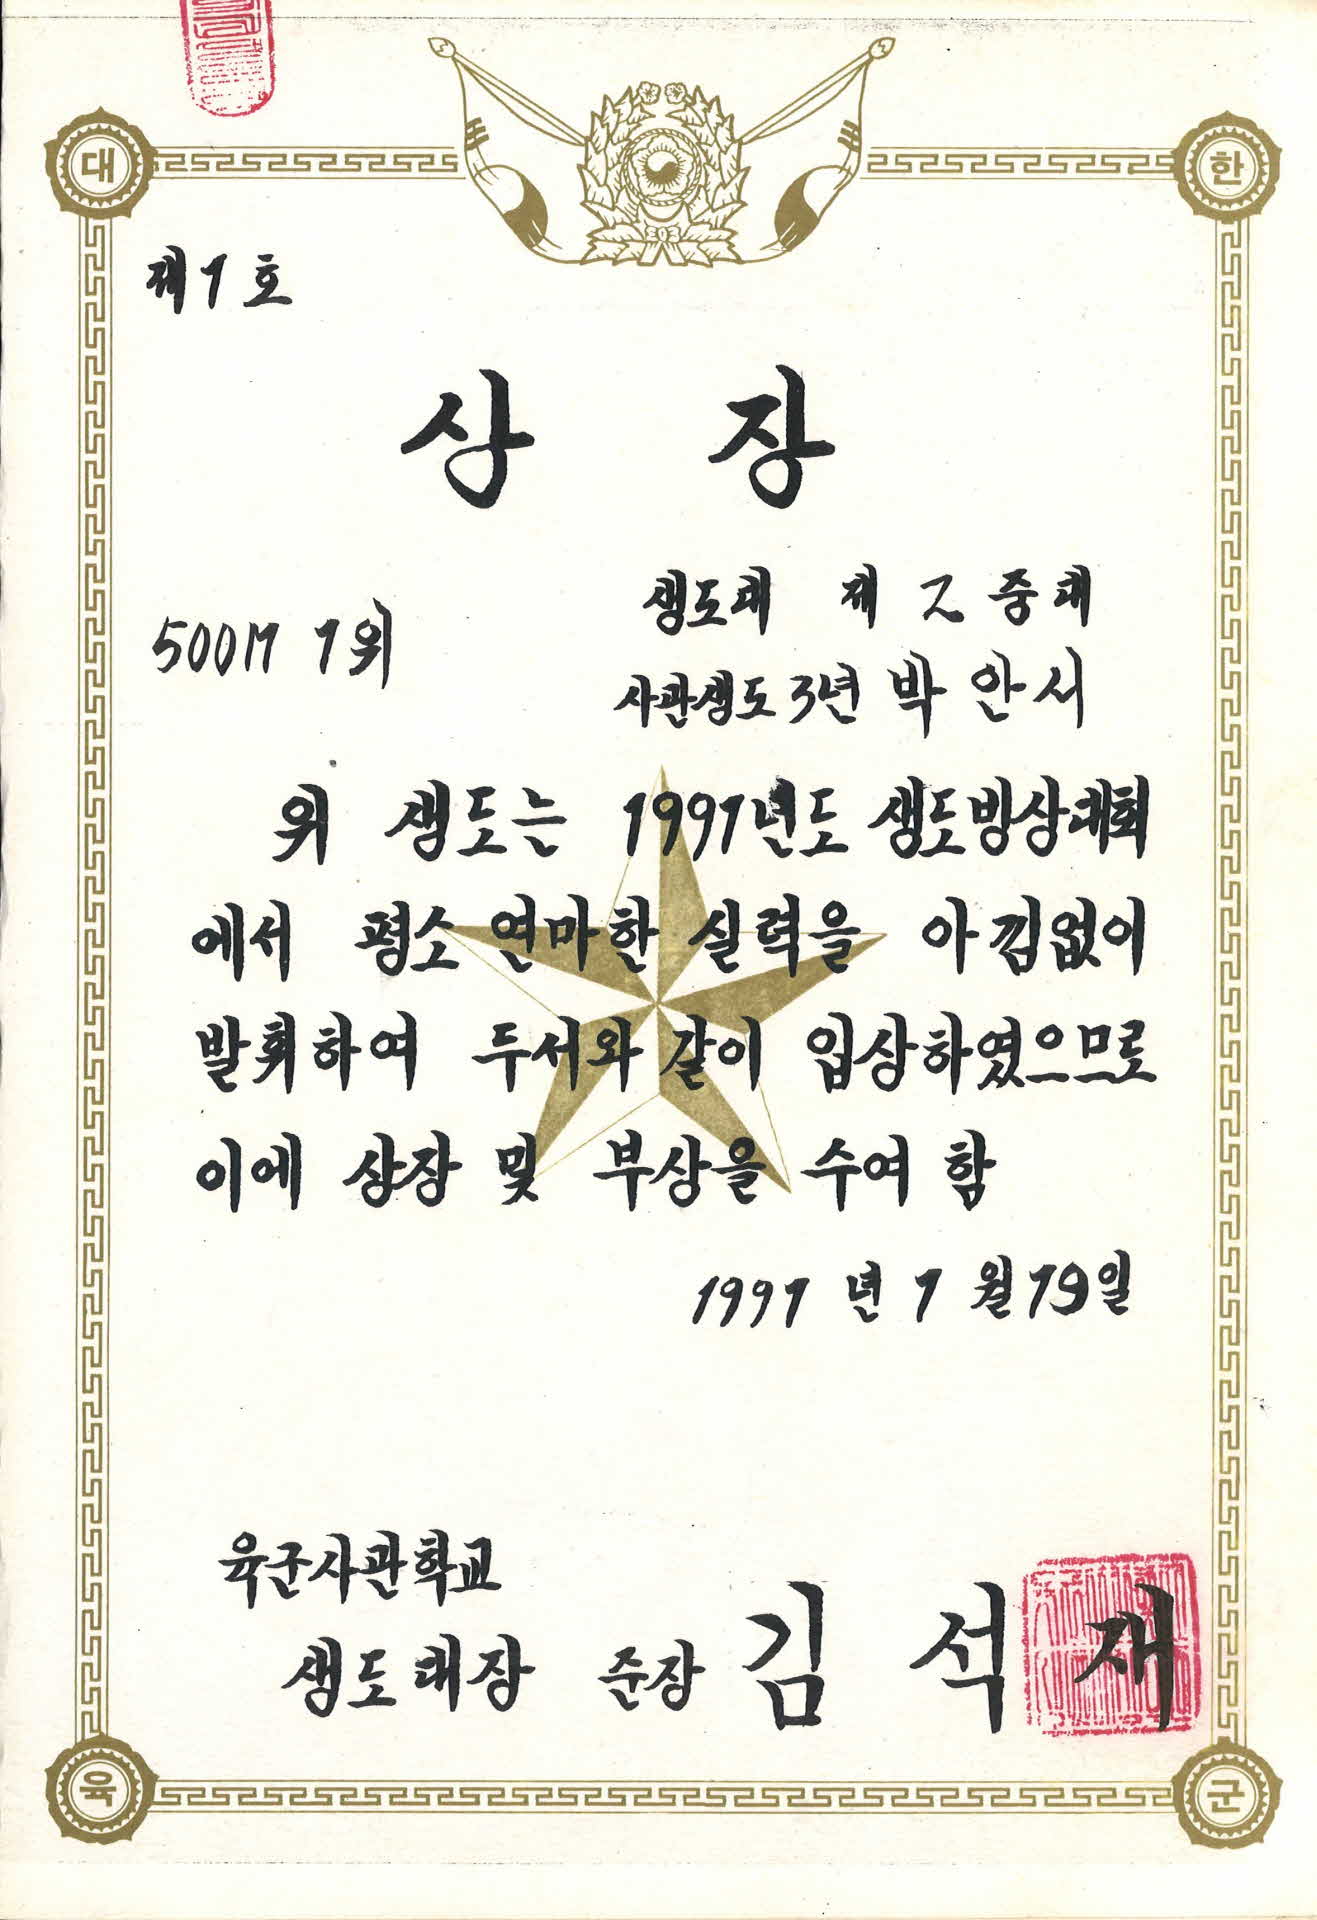 대 한
제1호
상 장
생도대 제 2 중대
500M 1위
사관생도 3년 박 안 시
위 생도는 1991년도 생도빙상대회
에서 평소 연마한 실력을 아낌없이
발휘하여 두서와 같이 입상하였으므로
이에 상장 및 부상을 수여 함
1991 년 1 월 19일
육군사관학교
생도대장 준장 김 석 재
육 군